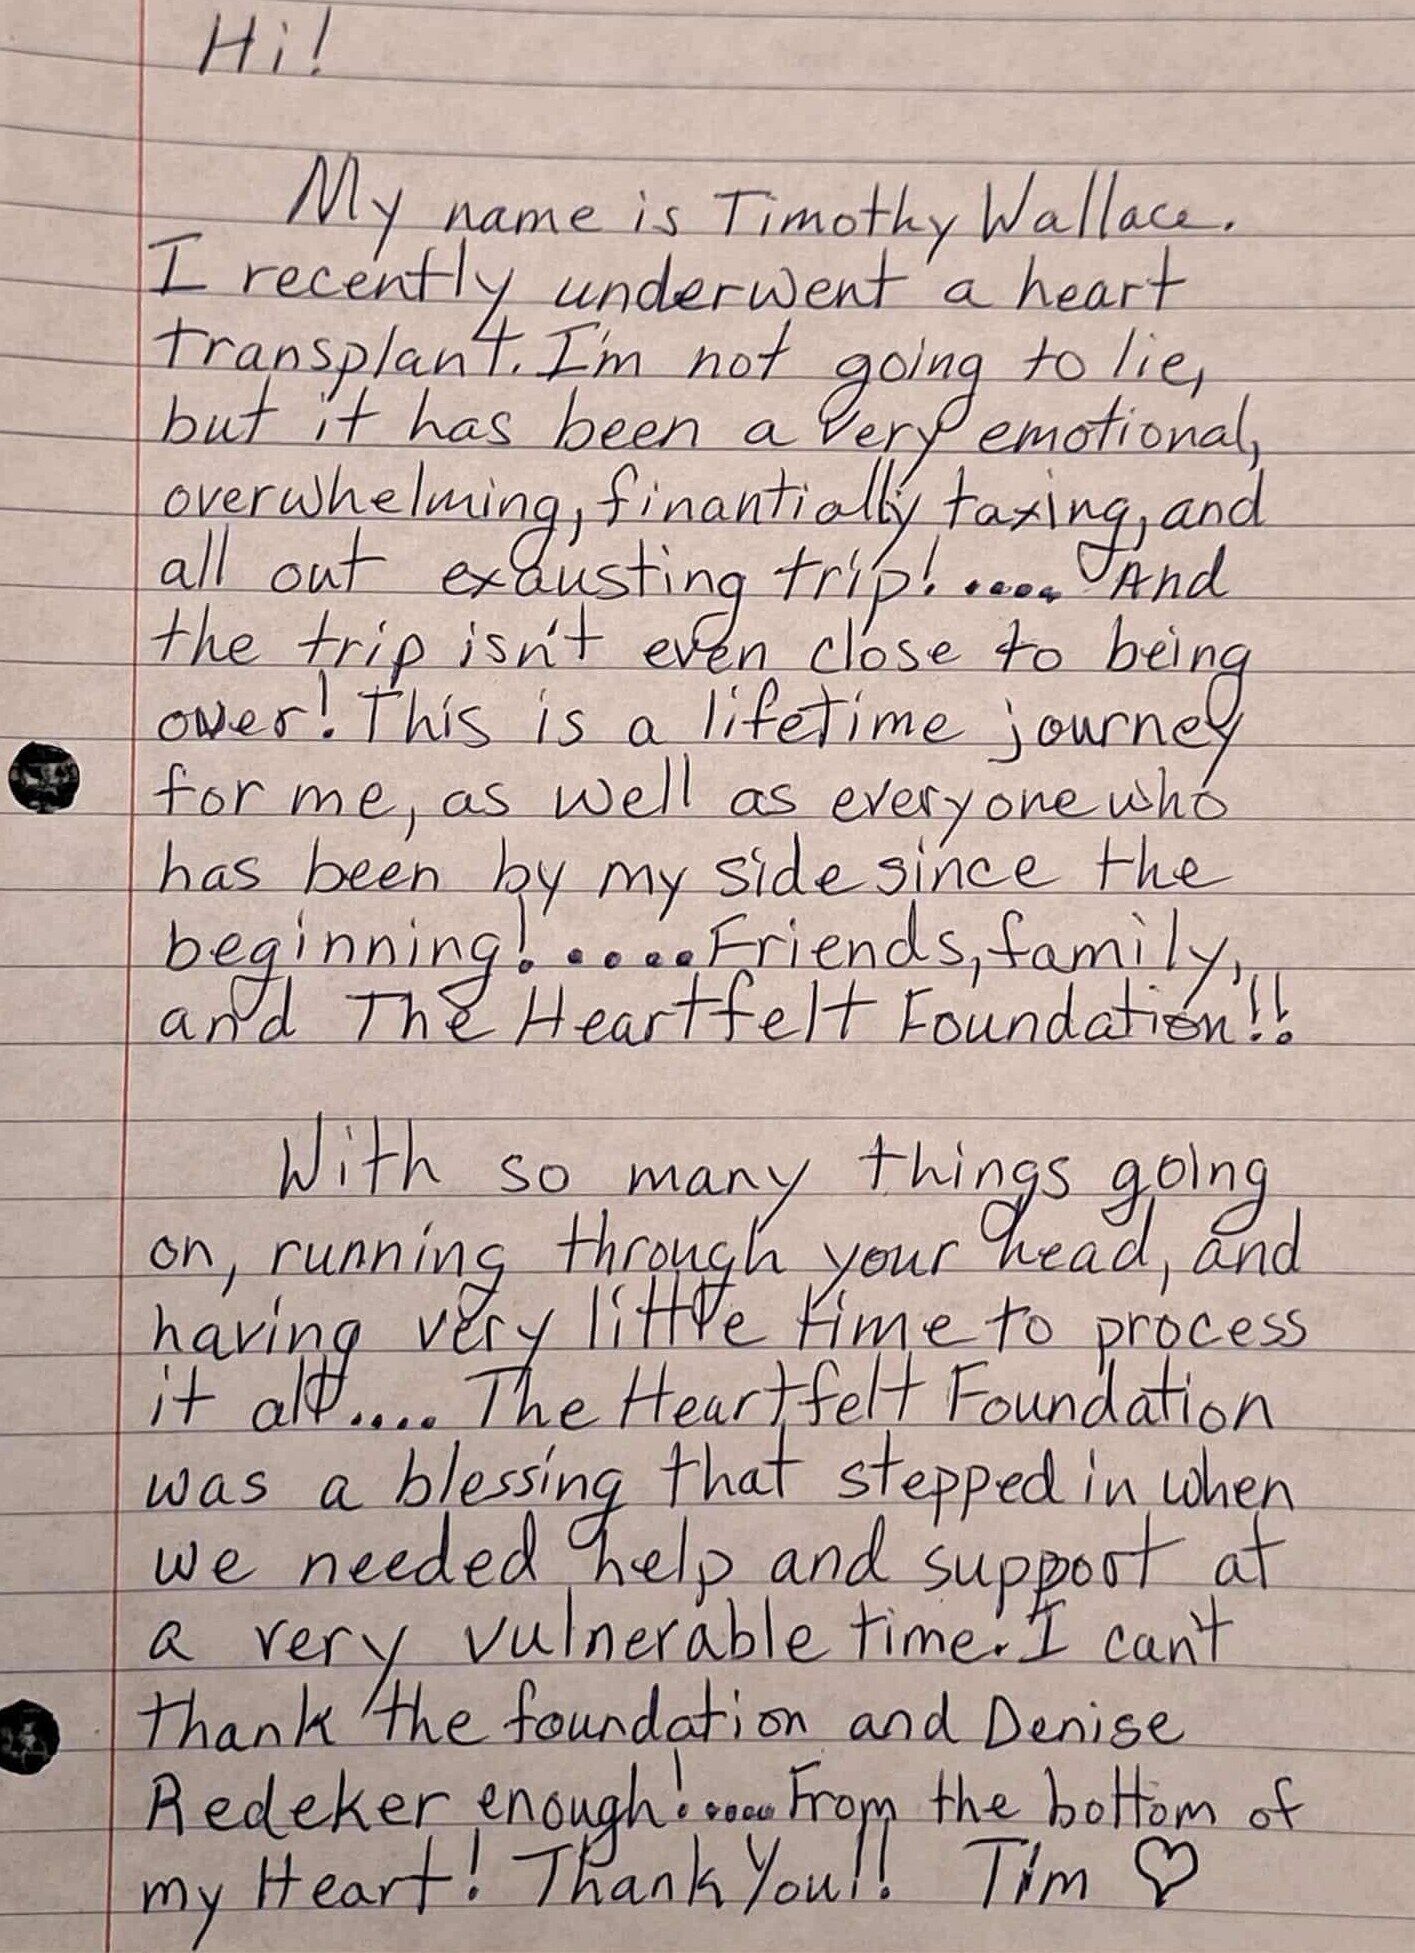 Hi!
My name is Timothy Wallace.
I recently underwent a heart
transplant. I'm not going to lie,
but it has been a very emotional,
overwhelming, finantially taxing, and
all out exausting trip!..... And
the trip isn't even close to being
over! This is a lifetime journey
for me, as well as everyone who
has been by my side since the
beginning!.....Friends, family,
and The Heartfelt Foundation!!
With so many things going
on, running through your head, and
having very little time to process
it all.... The Heartfelt Foundation
was a blessing that stepped in when
we needed help and support at
a very vulnerable time. I can't
thank the foundation and Denise
Redeker enough!.....From the bottom of
my Heart! Thank You!! Tim ♡